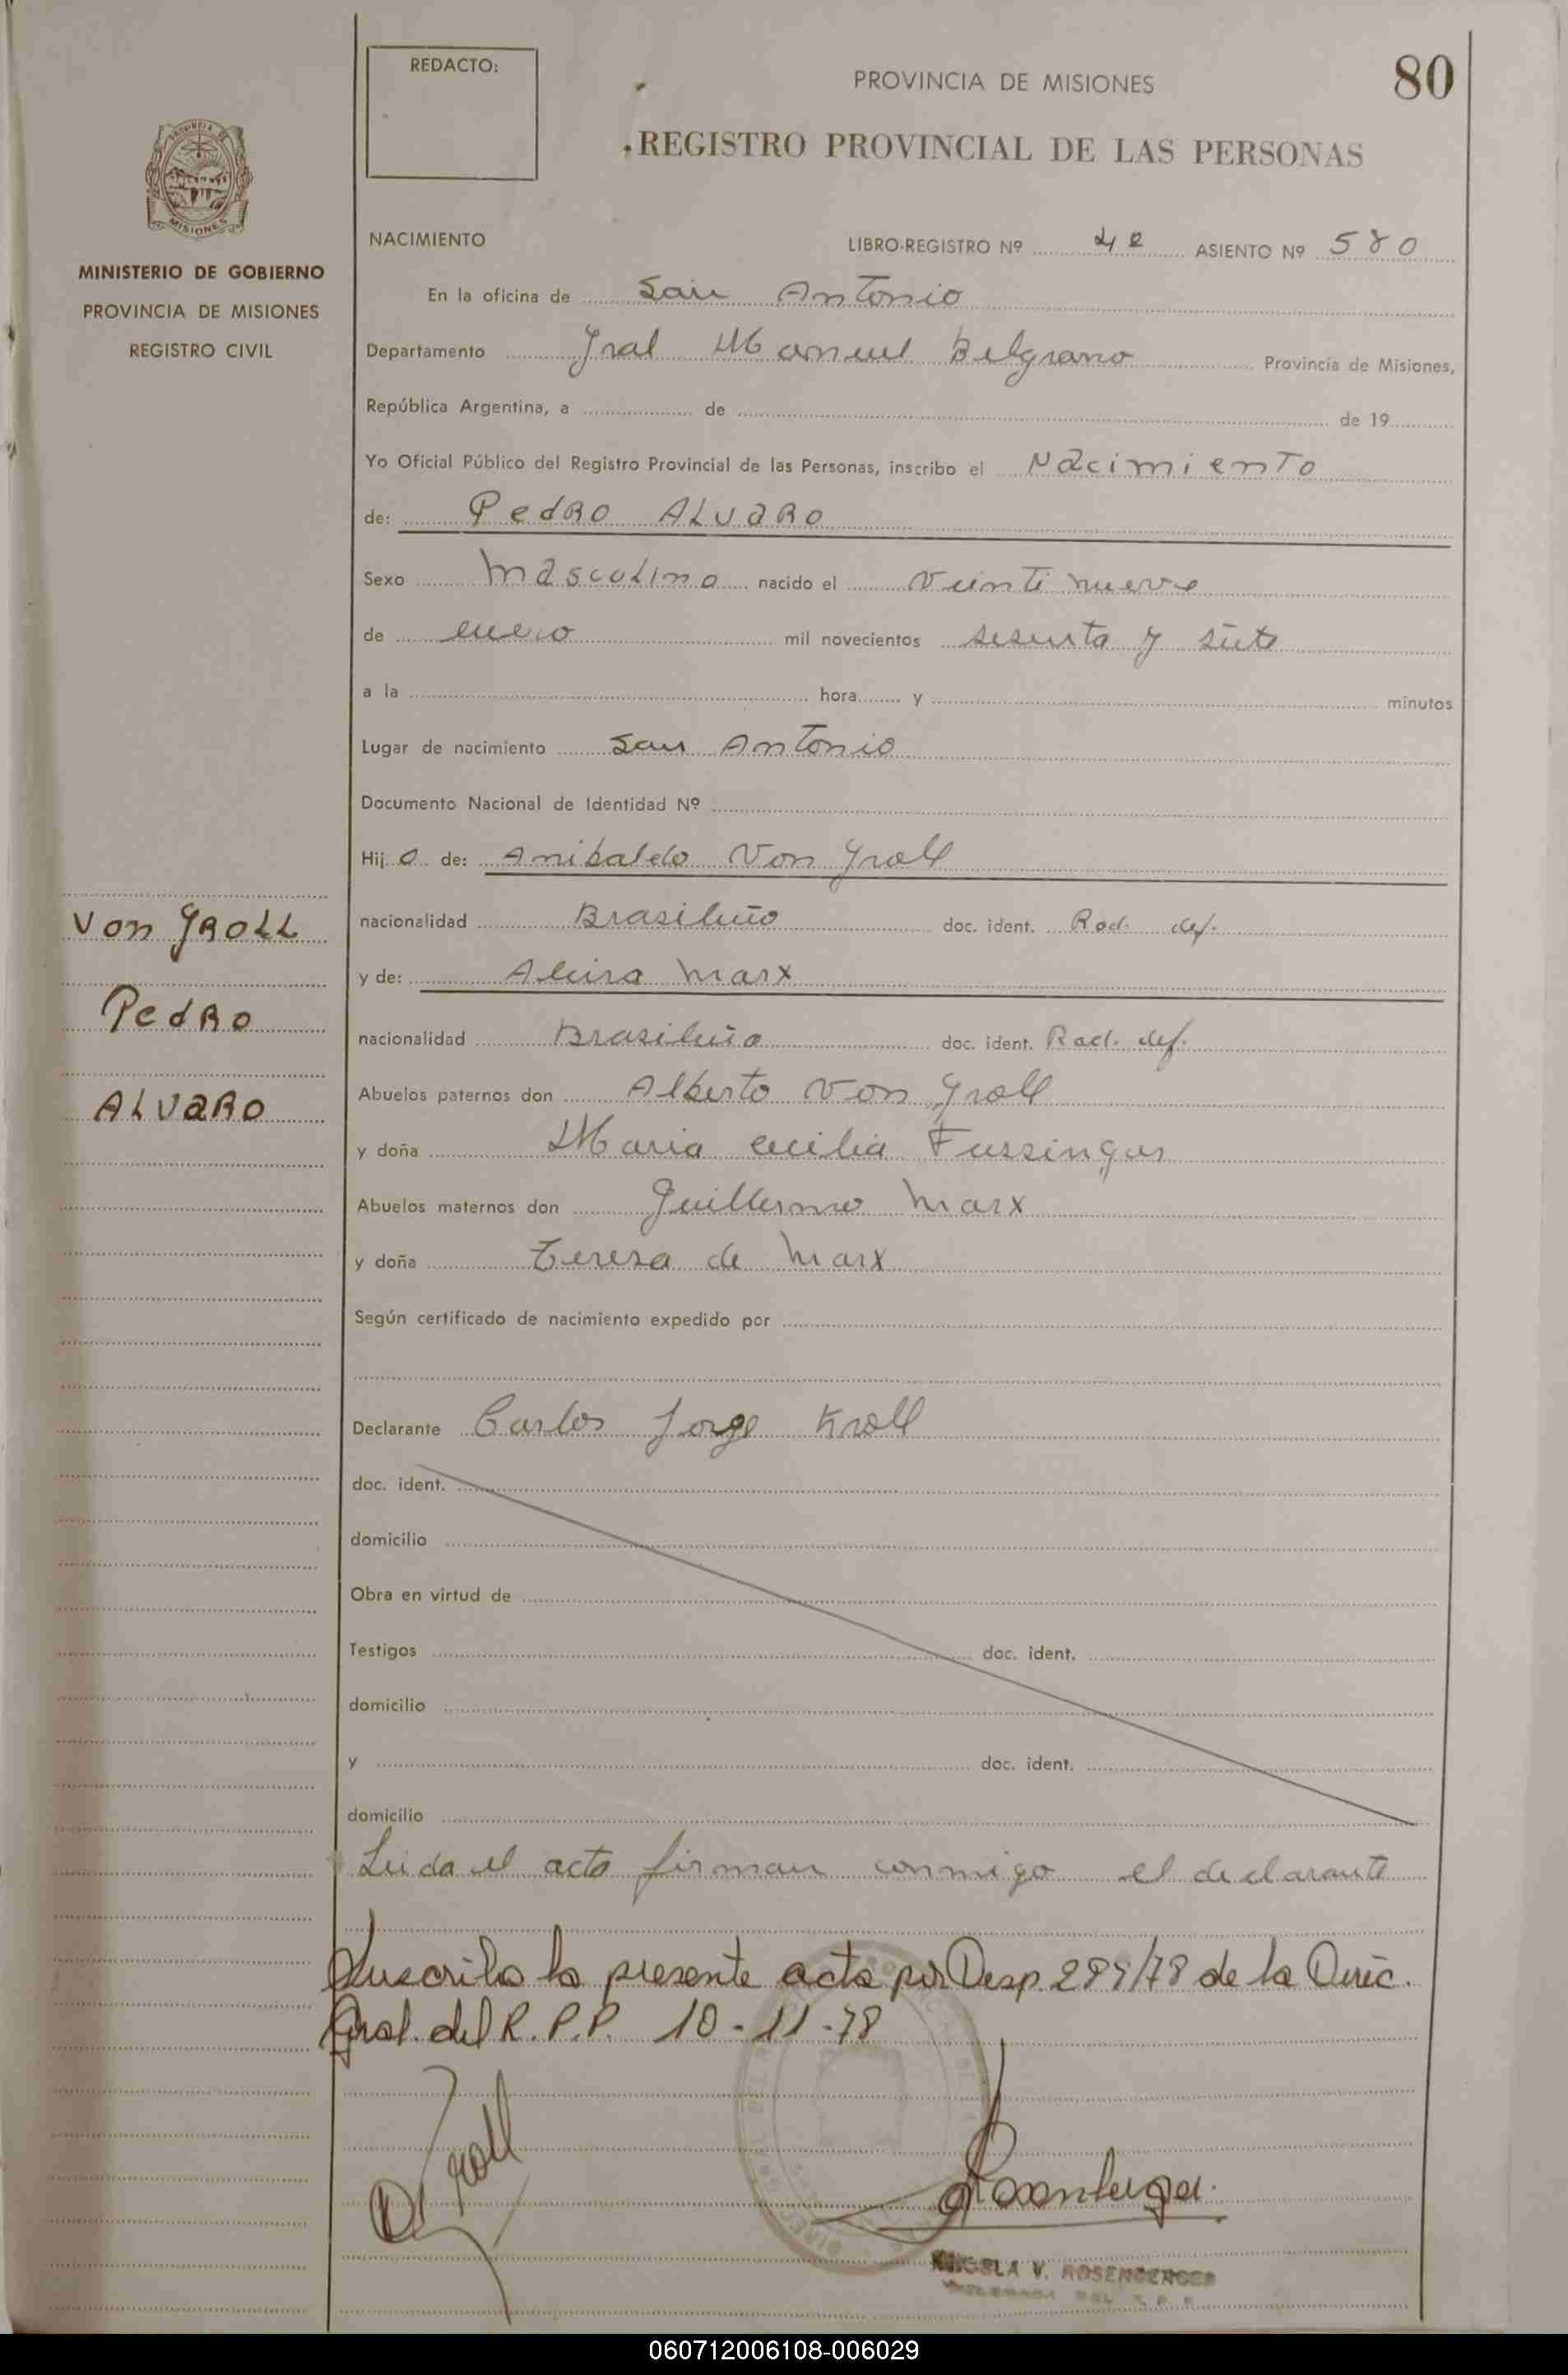 REDACTO:
PROVINCIA DE MISIONES
80
REGISTRO PROVINCIAL DE LAS PERSONAS
MISIONES
MINISTERIO DE GOBIERNO
PROVINCIA DE MISIONES
REGISTRO CIVIL
NACIMIENTO
LIBRO-REGISTRO Nº ASIENTO Nº 580
En la oficina de San Antonio
Departamento Gral Manuel Belgrano Provincia de Misiones,
República Argentina, a de de 19
Yo Oficial Público del Registro Provincial de las Personas, inscribo el Nacimiento
de: Pedro Alvaro
Sexo Masculino nacido el veinti nueve
de enero mil novecientos sesenta y siete
a la hora y minutos
Lugar de nacimiento San Antonio
Documento Nacional de Identidad Nº
Hijo de: Anibaldo Von Groll
nacionalidad Brasileño doc. ident. Rad. def.
y de: Alcira Marx
nacionalidad Brasileña doc. ident. Rad. def.
Abuelos paternos don Alberto Von Groll
y doña Maria Cecilia
Abuelos maternos don Guillermo Marx
y doña Teresa de Marx
Según certificado de nacimiento expedido por
Declarante Carlos Jorge Kroll
doc. ident.
domicilio
Obra en virtud de
Testigos doc. ident.
domicilio
y doc. ident.
domicilio
Leida el acta firman conmigo el declarante
Suscribo la presente acta por Desp. /78 de la Direc.
Gral. del R.P.P. 10-11-78
Von Groll
Pedro
Alvaro
V. ROSENBERGER
060712006108-006029